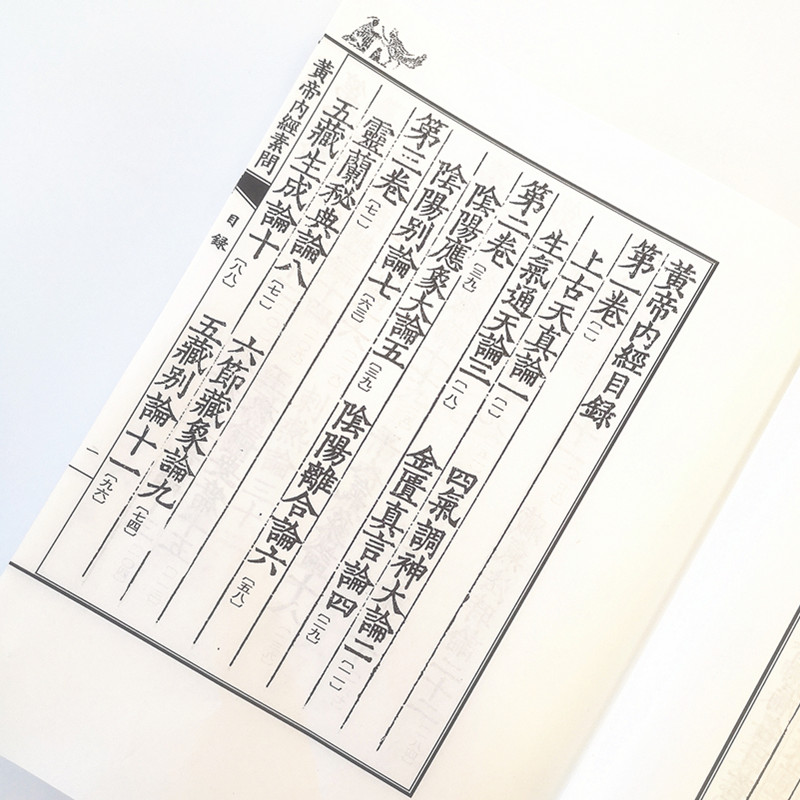 黄帝内經目錄
第一卷〔一〕
上古天真論一〔一〕 四氣調神大論二〔一一〕
生氣通天論三〔一八〕 金匱真言論四〔二九〕
第二卷〔三九〕
陰陽應象大論五〔三九〕 陰陽離合論六〔五八〕
陰陽别論七〔六三〕
第三卷〔七一〕
靈蘭秘典論八〔七一〕 六節藏象論九〔七四〕
五藏生成論十〔八八〕 五藏别論十一〔九六〕
黄帝内經素問
目錄
一